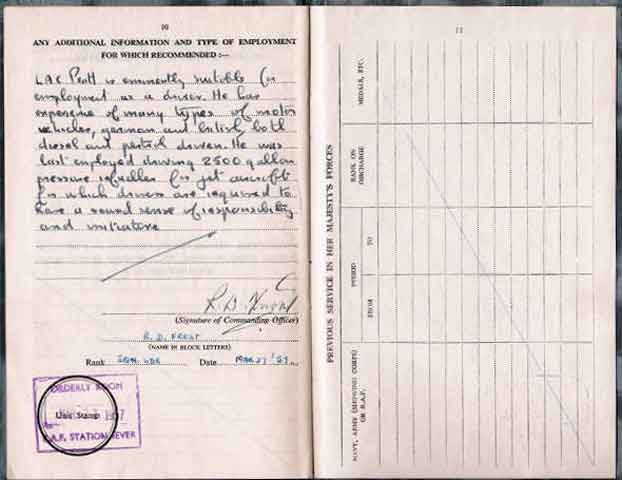 10
ANY ADDITIONAL INFORMATION AND TYPE OF EMPLOYMENT
FOR WHICH RECOMMENDED :—
LAC Pratt is eminently suitable for
employment as a driver. He has
experience of many types of motor
vehicles, german and british, both
diesel and petrol driven. He was
last employed driving 2500 gallon
pressure refueller for jet aircraft
for which drivers are required to
have a sound sense of responsibility
and initiative
(Signature of Commanding Officer)
R. D.
(NAME IN BLOCK LETTERS)
Rank SQN. LDR Date
ORDERLY ROOM
Unit Stamp
R.A.F. STATION JEVER
11
PREVIOUS SERVICE IN HER MAJESTY'S FORCES
NAVY, ARMY (INCLUDING CORPS)
OR R.A.F.
PERIOD
FROM
TO
RANK ON
DISCHARGE
MEDALS, ETC.